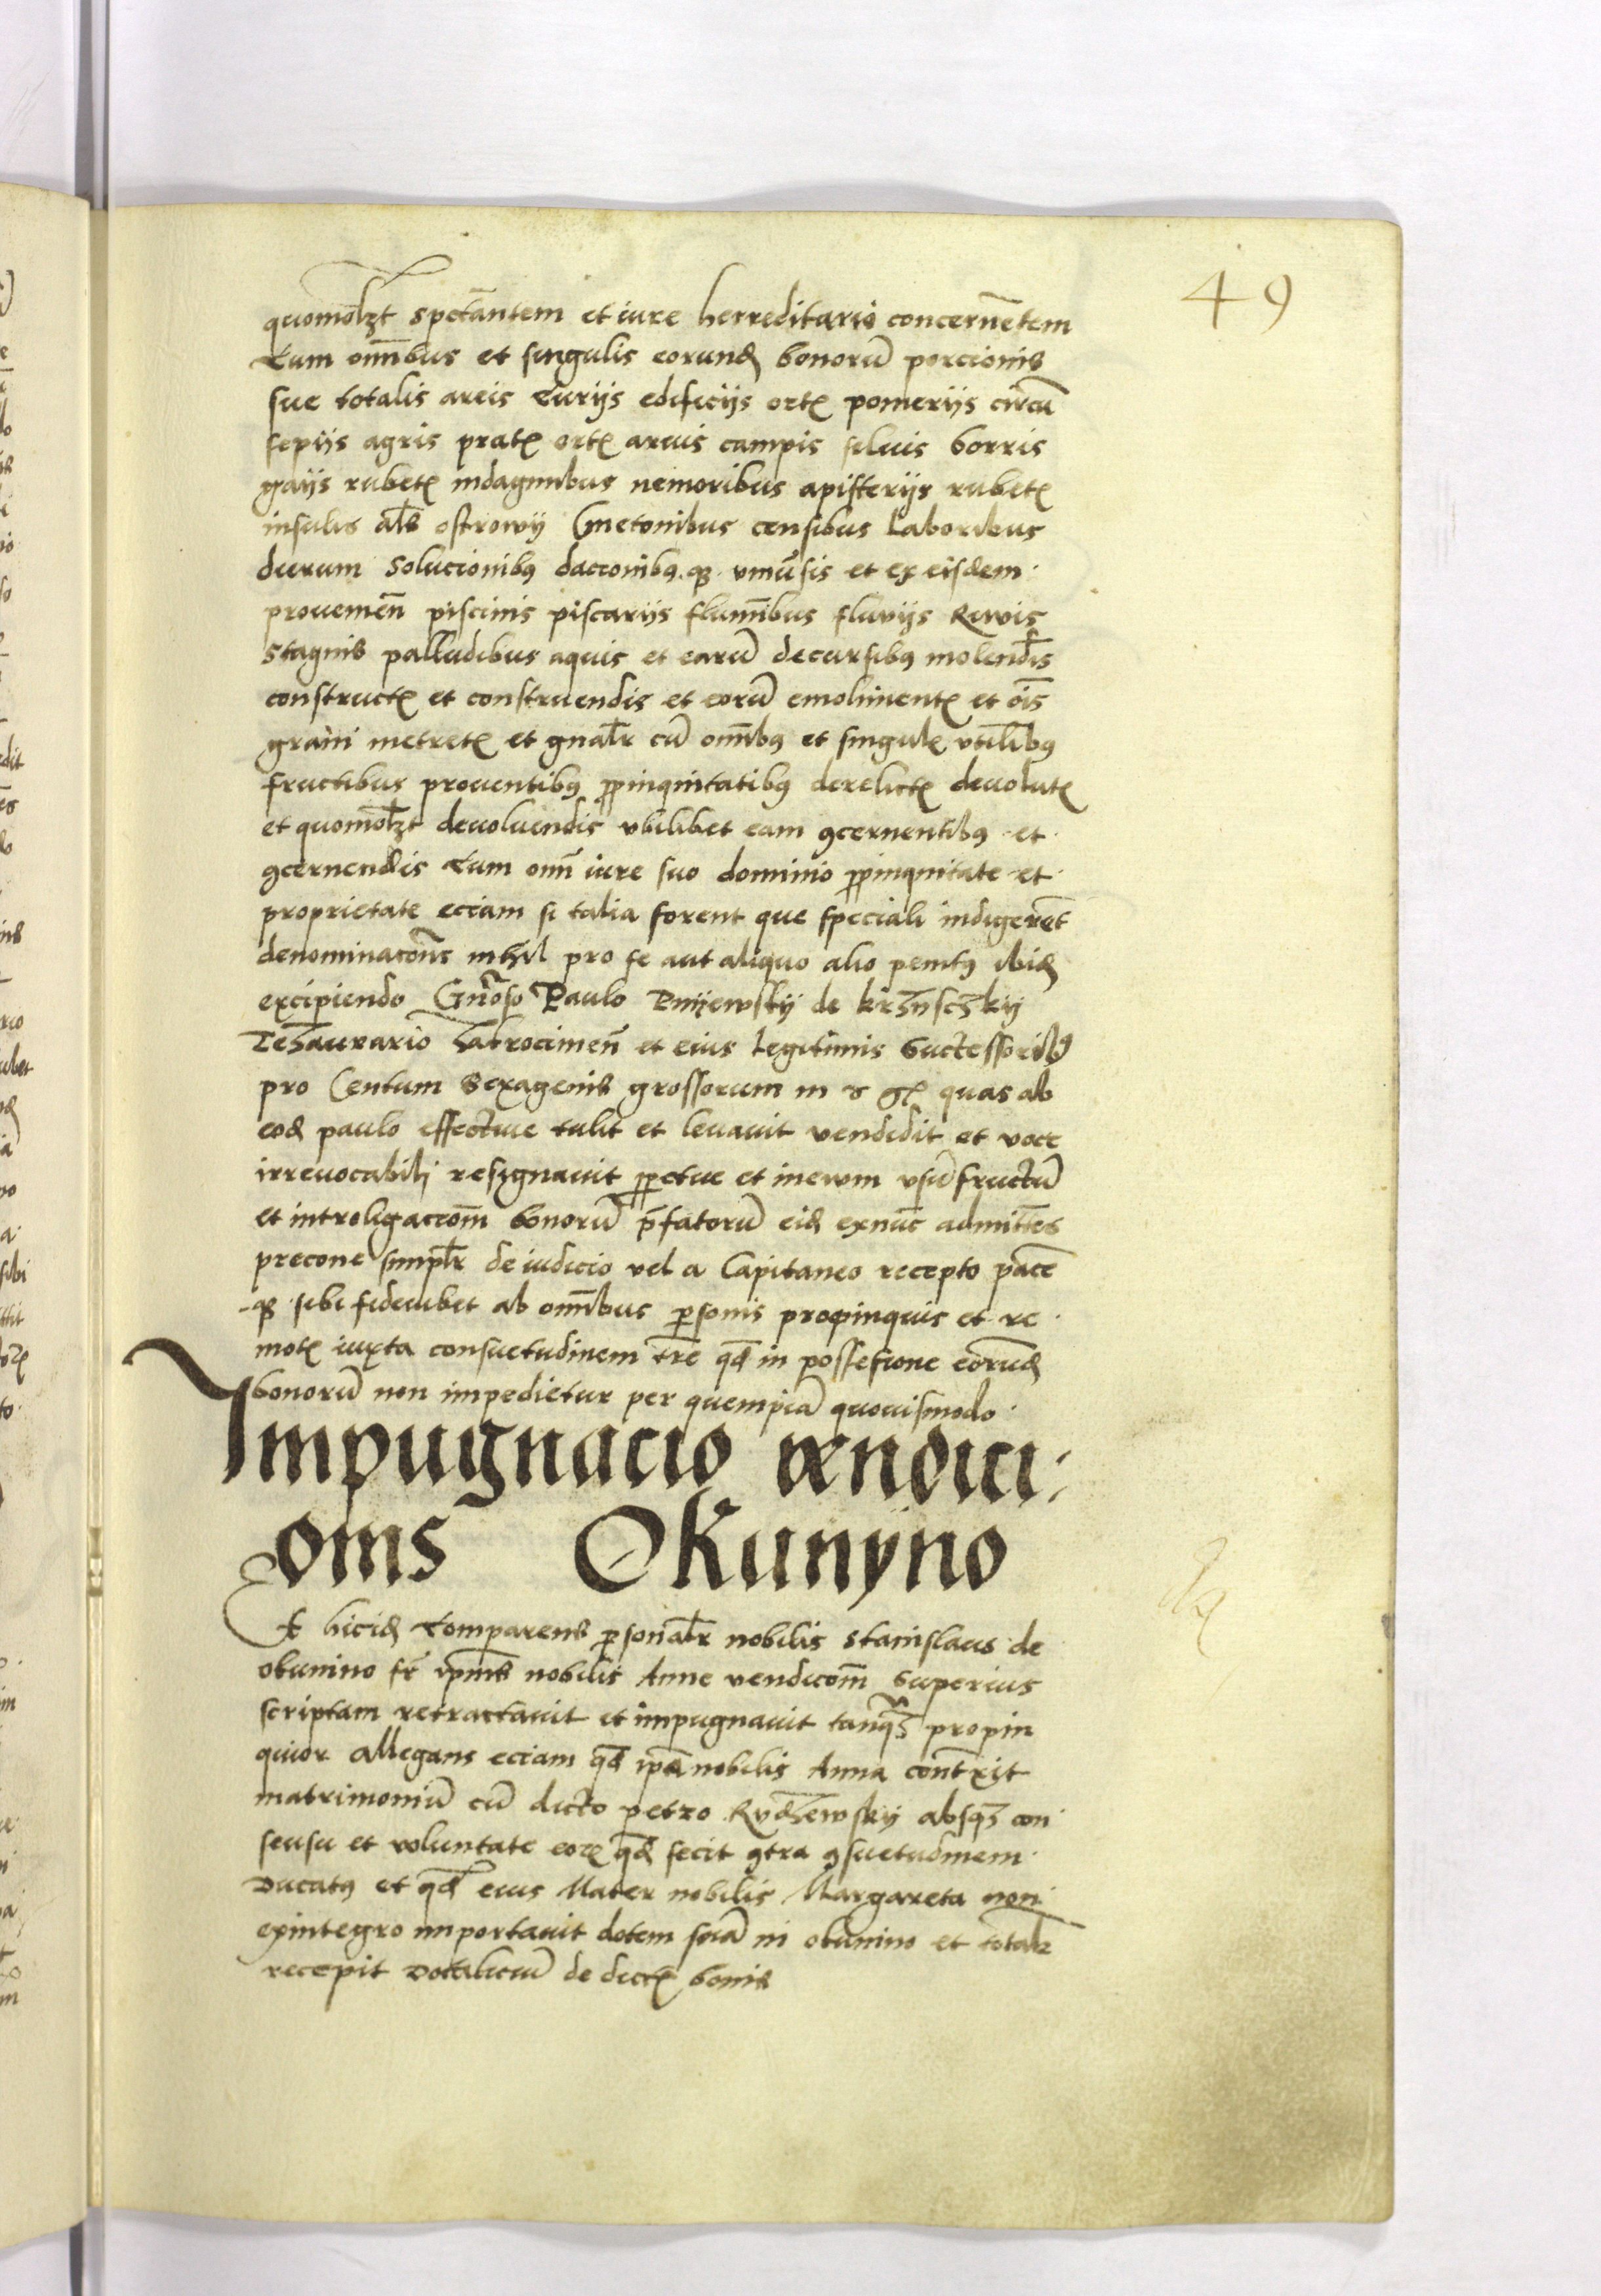 49
quomolꝫt spectāntem et iure herreditario concernētem
cum om̄ibus et singulis eorundꝭ bonorū porcionis
sue totalis areis curijs edificijs ortꝭ pomerijs circū
sepijs agris pratꝭ ortꝭ aruis campis siluis borris
gaijs rubetꝭ indaginibus nemoribus apifterijs rubetꝭ
insulis als̄ ostrowij Cmetonibus censibus laboribus
dierum solucionibꝯ daccionibꝯ qꝫ vniūsis et ex eisdem
prouenien̄ piscinis piscarijs flumīnibus fluvijs Rivvis
stagnis palludibus aquis et earū decursibꝯ molend̄is
constructꝭ et construendis et eorū emolimentꝭ et oīs
grani metretꝭ et gnal̄r cū om̄ibꝯ et singulꝭ vtilībꝯ
fructibus prouentibꝯ ꝓpinquitatibꝯ derelictꝭ deuolutꝭ
et quomolꝫt deuoluendis vbilibet eam ꝯcernentibꝯ et
ꝯcernendis cum om̄i iure suo dominio ꝓpinquitate et
proprietate eciam si talia forent que speciali indigerēt
denominacōnis nihil pro se aut aliquo alio penitꝯ ibidꝭ
excipiendo Gn̄oso Paulo de
Tezaurario et eius legitimis successoribꝯ
pro Centum sexagenis grossorum in quas ab
eodꝭ paulo effectiue tulit et leuauit vendidit et voce
irreuocabilj resignauit ꝑpetue et in eum vsūfructū
et introligaccōm bonorū p̄fatorū eidꝭ exnūc admittēs
precone simpl̄r de iudicio vel a Capitaneo recepto pacē
qꝫ sibi fideiubet ab om̄ibus ꝑsonis propinquis et re
motꝭ iuxta consuetudinem tr̄e qd̄ in possesione eorūdꝭ
bonorū non impedietur per quempiā quouismodo
Impugnacio vendici
onis Okunyno
Et hicidꝭ comparens ꝑsonal̄r nobilis Stanislaus de
okunino fr̄ nobilis Anne vendicōm superius
scriptam retractauit et impugnauit tanqꝫ propin
quior allegans eciam qd̄ ip̄a nobilis Anna contrāxit
matrimoniū cū dicto petro Rvdzewskij absqꝫ con
sensu et voluntate eorꝭ qd̄ fecit ꝯtra ꝯsuetudinem
Ducatꝯ et qd̄ eius Mater nobilis Margareta non
exintegro importauit dotem suā in okunino et total̄r
recepit dotaliciū de dictꝭ bonis